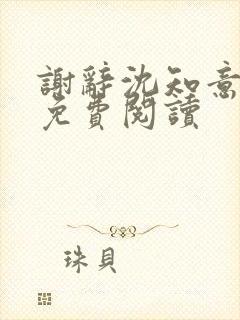 謝辭沈知意
免費閱讀
珠貝